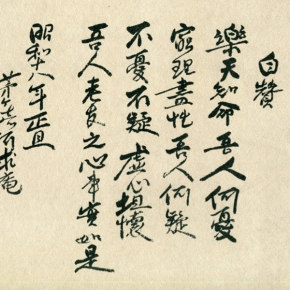 自贊
樂天知命吾人何憂
窮理盡性吾人何疑
不憂不疑虛心坦懷
吾人老友之心事實如是
昭和十八年正旦